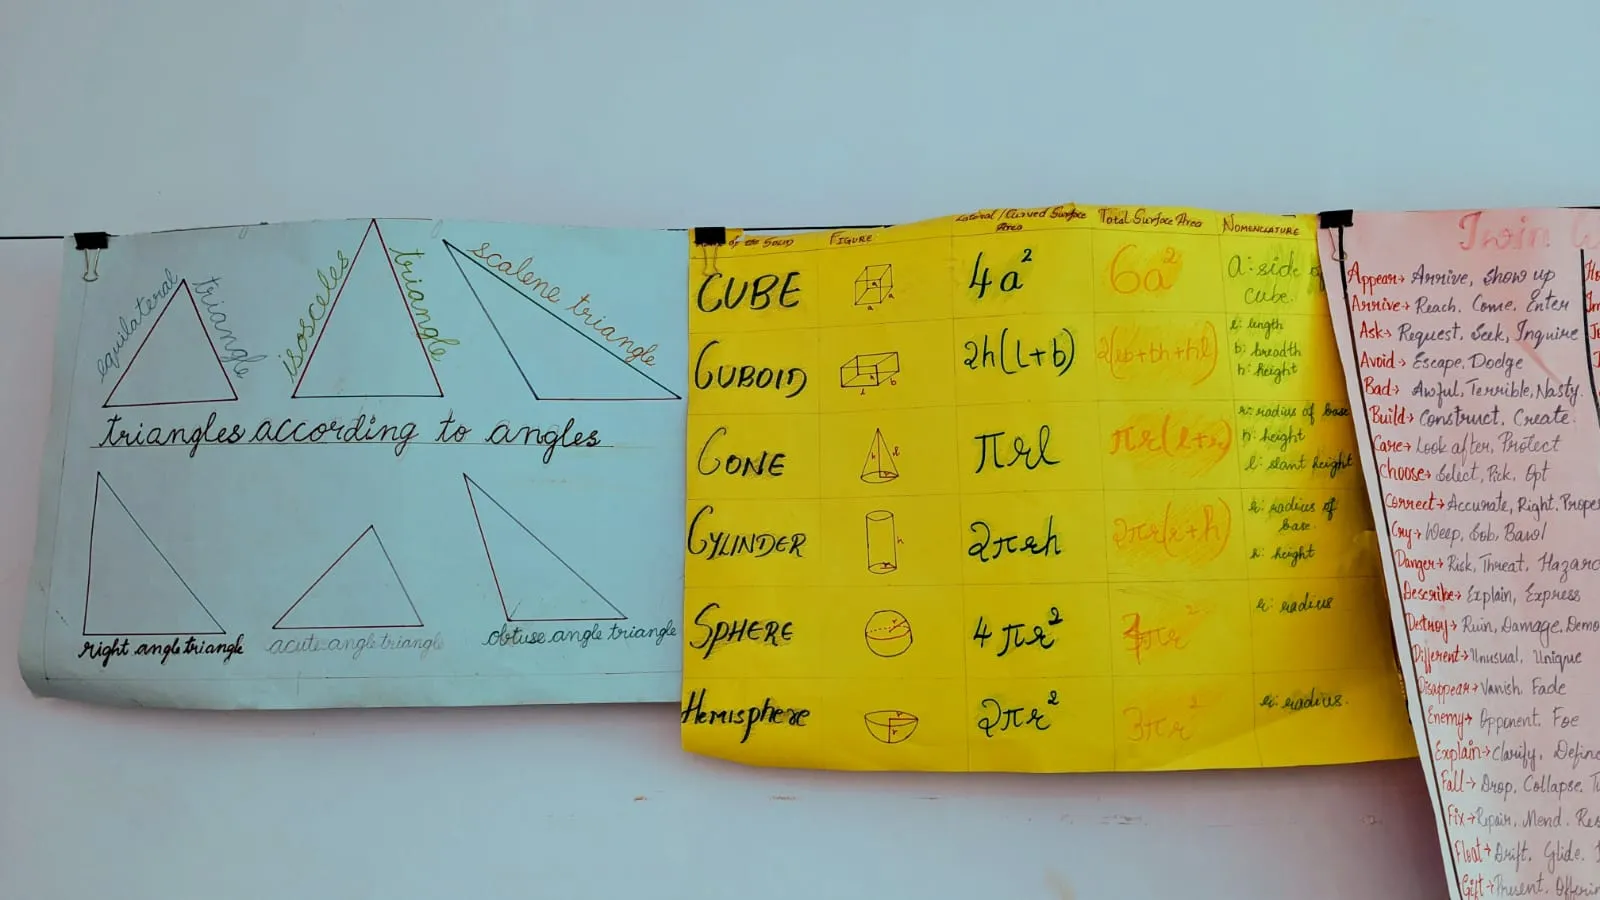 equilateral triangle
isosceles triangle
scalene triangle
triangles according to angles
right angle triangle
acute angle triangle
obtuse angle triangle
of the SOLID FIGURE Lateral/Curved Surface Area Total Surface Area NOMENCLATURE
CUBE 4a² 6a² a: side of cube.
CUBOID 2h(l+b) 2(lb+bh+hl) l: length
b: breadth
h: height
CONE πrl πr(l+r) r: radius of base
h: height
l: slant height
CYLINDER 2πrh 2πr(r+h) r: radius of base
h: height
SPHERE 4πr² πr² r: radius
Hemisphere 2πr² 3πr² r: radius.
Twin
Appear→ Arrive, Show up
Arrive→ Reach, Come, Enter
Ask→ Request, Seek, Inquire
Avoid→ Escape, Dodge
Bad→ Awful, Terrible, Nasty.
Build→ Construct, Create.
Care→ Look after, Protect
Choose→ Select, Pick, Opt
Correct→ Accurate, Right, Prope
Cry→ Weep, Sob, Bawl
Danger→ Risk, Threat, Hazard
Describe→ Explain, Express
Destroy→ Ruin, Damage, Demo
Different→ Unusual, Unique
Disappear→ Vanish, Fade
Enemy→ Opponent, Foe
Explain→ Clarify, Define
Fall→ Drop, Collapse,
Fix→ Repair, Mend, Res
Float→ Drift, Glide,
Gift→ Present, Offerin